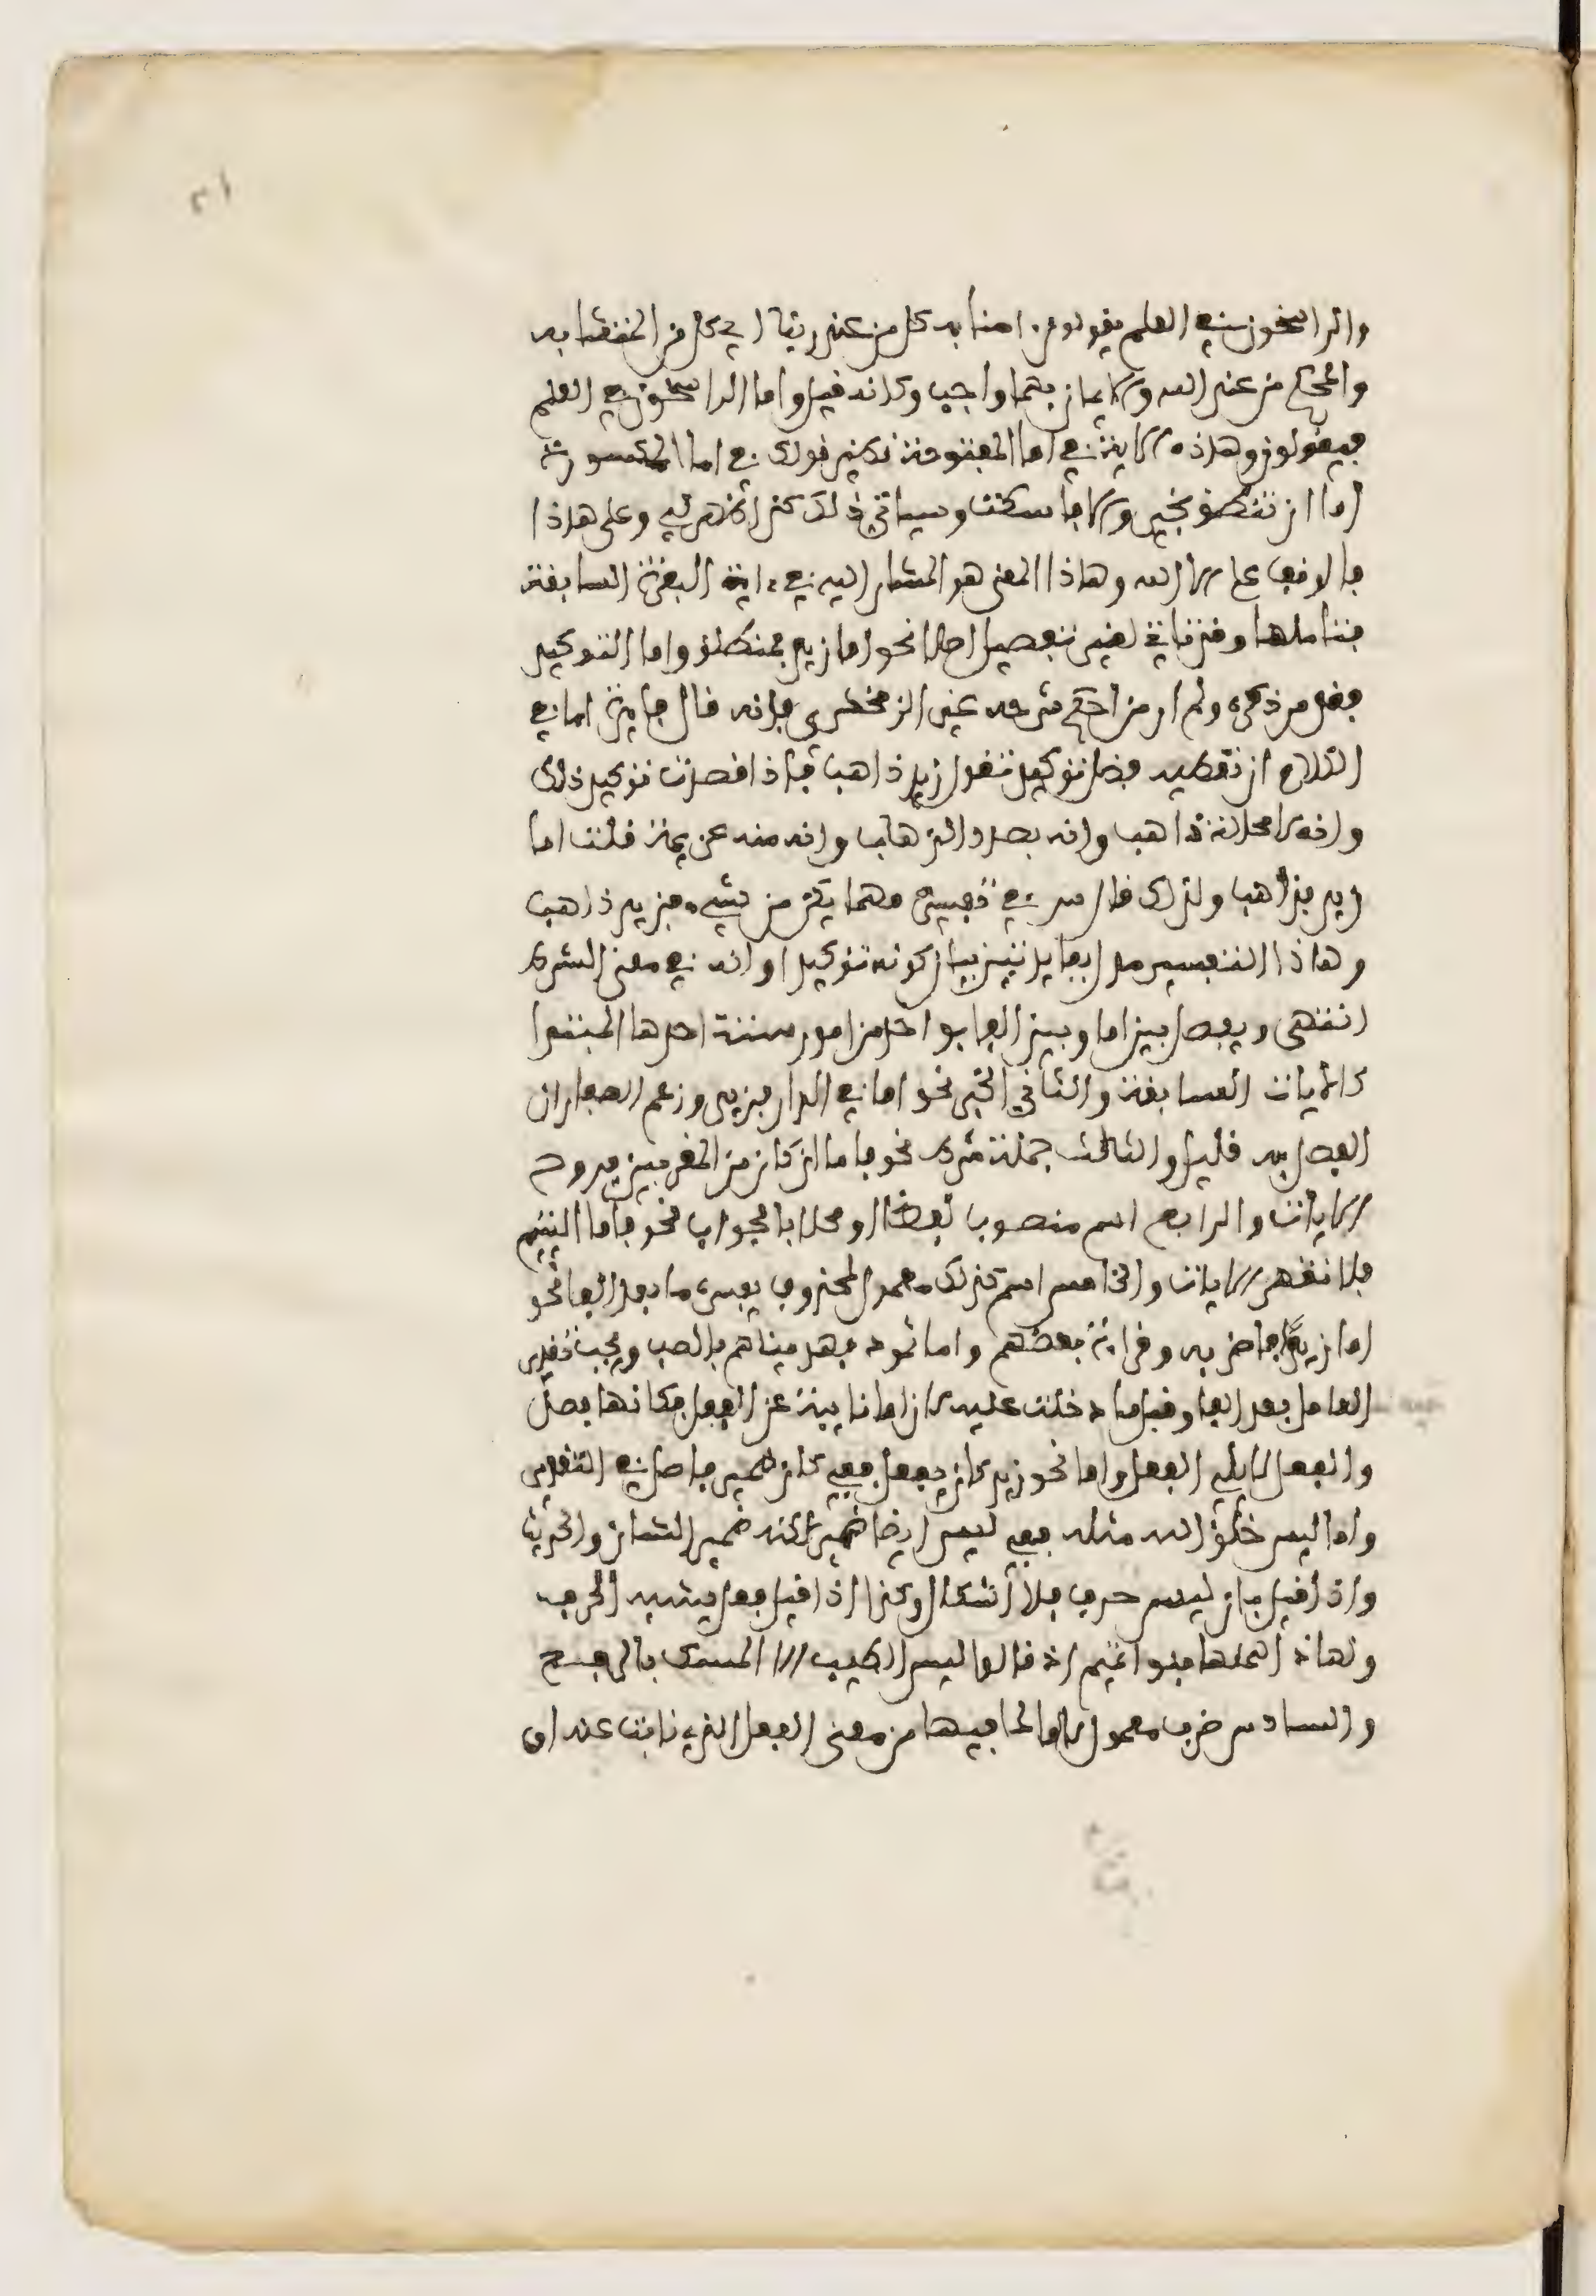 ٢١
والراسخون في العلم يقولون امنا به كل من عند ربنا اي كل من المتشابه
والمحكم من عند الله والايمان بهما واجب وكانه قيل واما الراسخون في العلم
فيقولون وهذه الاية في اما المفتوحة نظير قولك في اما المكسورة
اما ان تنطق بخير والا فاسكت وسياتي ذلك كذا ظهر لي وعلى هاذا
فالوقف على الا الله وهاذا المعنى هو المشار اليه في ءاية البقرة السابقة
فتاملها وقد تاتي لغير تفصيل اصلا نحو اما زيد فمنطلق واما التوكيد
فقل من ذكره ولم ار من احكم شرحه غير الزمخشري فانه قال فايدة اما في
الكلام ان تعطيه فضل توكيد تقول زيد ذاهب فاذا قصدت توكيد ذلك
وانه لا محالة ذاهب وانه بصدد الذهاب وانه منه عزيمة قلت اما
زيد فذاهب ولذلك قال س في تفسيره مهما يكن من شيء فزيد ذاهب
وهاذا التفسير مدل بفايدتين بيان كونه توكيدا وانه في معنى الشرط
انتهى ويفصل بين اما وبين الفا بواحد من امور ستة احدها المبتدا
كالايات السابقة والثاني الخبر نحو اما في الدار فزيد وزعم الصفار ان
الفصل به قليل والثالث جملة شرط نحو فاما ان كان من المقربين فروح
الايات والرابع اسم منصوب لفظا او محلا بالجواب نحو فاما اليتيم
فلا تقهر الايات والخامس اسم كذلك معمول لمحذوف يفسره ما بعد الفا نحو
اما زيدا فاضربه وقراءة بعضهم واما ثمود فهديناهم بالصب ويجب تقدير
العامل بعد الفا وقبل ما دخلت عليه لان اما نايبة عن الفعل فكانها فصل
والفعل لا يلي الفعل واما نحو زيد كان يفعل ففي كان ضمير فاصل في التقدير
واما ليس خلق الله مثله ففي ليس ايضا ضمير لكنه ضمير الشان والحديث
واذا قيل بان ليس حرف فلا اشكال وكذا اذا قيل فعل يشبه الحرف
ولهاذا اهملها بنو تميم اذ قالوا ليس الطيب الا المسك بالرفع
والسادس ظرف معمول لاما لما فيها من معنى الفعل الذي نابت عنه او